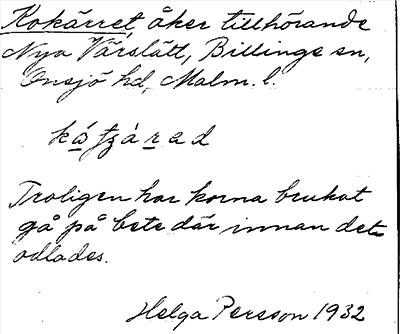 Kokärret, åker tillhörande
Nya Värslätt, Billinge sn,
Onsjö hd, Malm. l.
Troligen har korna brukat
gå på bete där innan det
odlades.
Helga Persson 1932